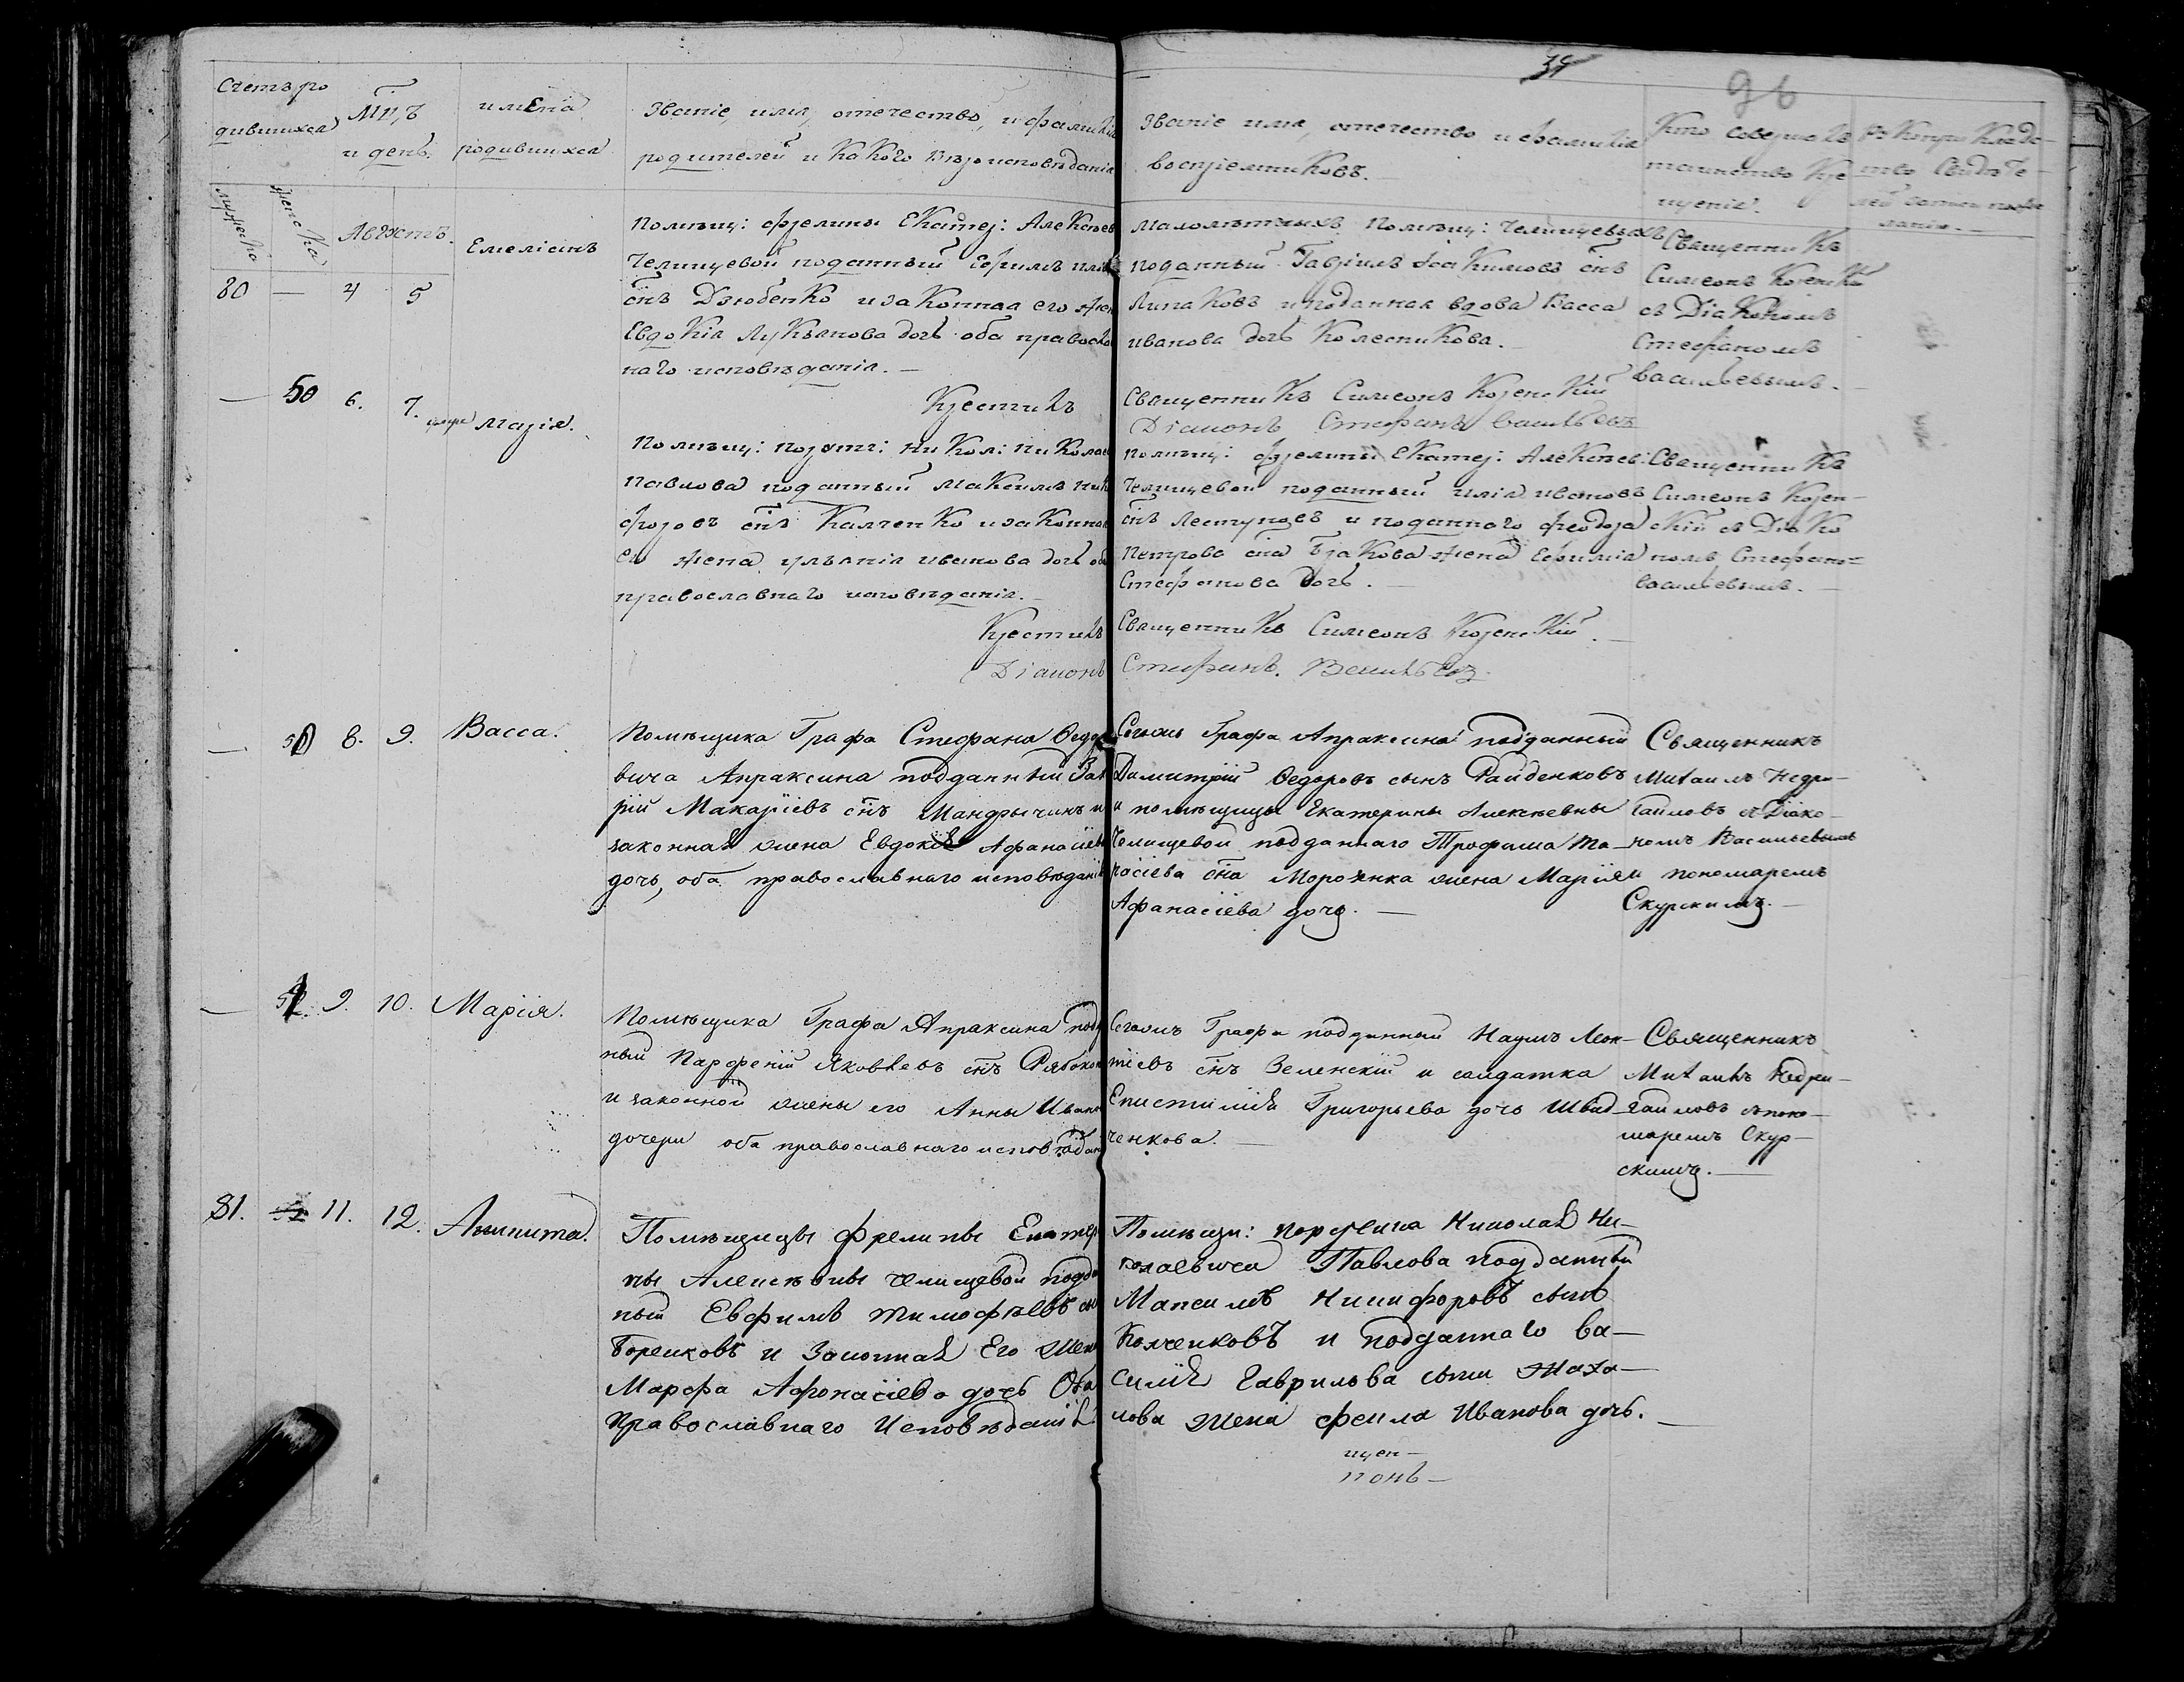 39
96
Счетъ ро
дившихся
Мцъ
и день.
имена
родившихся
Званіе, имя, отечество, и фамилія
родителей и какого вѣроисповѣданія
Званіе имя, отечество и фамилія
воспріемниковъ.
Кто совершалъ
таинство кре
щенія.
Рукоприкладс-
тво свидѣте-
лей записи по же
ланію.
мужеска
женска
Августъ.
80 — 4 5
Емеліанъ
Помѣщ: фрелины Екатер: Алексѣев
Челищевой поданный Ефимъ
снъ Дзюбенко и законная его жен
Евдокія Лукьянова дочь оба правосла
наго исповѣданія. —
Малолѣтныхъ помѣщ: Челищевыхъ
поданный Гавріилъ Іоакимовъ снъ
Липаковъ и поданная вдова Васса
иванова дочь Колесникова. —
Священникъ
Симеонъ Коренскій
съ Діакономъ
Стефаномъ
васильевымъ. —
Крестилъ Священникъ Симеонъ Коренскій
Діаконъ Стефанъ Васильевъ
— 50 6. 7. Марія.
Помѣщ: порутч: Никол: Николае
Павлова поданный Максимъ ники
форовъ снъ Калченко и законная
его жена ульянія иванова дочь оба
православнаго исповѣданія. —
Помѣщ: фрелины Екатер: Алексѣев:
Челищевой поданный илія ивановъ
снъ Лестуновъ и поданного феодора
Петрова сна Бракова жена Ефимія
Стефанова дочь. —
Священникъ
Симеонъ Корен-
скій съ Діако
номъ Стефано=
васильевымъ. —
Крестилъ Священникъ Симеонъ Коренскій. —
Діаконъ Стефанъ Васильевъ.
— 50 8. 9. Васса.
Помѣщика Графа Стефана Федор
вича Апраксина подданный Заха
рій Макаріевъ снъ Мандрычинъ и
законная жена Евдокія Афанасіев
дочь, оба православнаго исповѣданія
Сегожъ Графа Апраксина подданный
Димитрій Федоровъ сынъ Гайденковъ
и помѣщицы Екатерины Алексѣевны
Челищевой подданнаго Трофима Та-
расіева сна Морозенка жена Марія
Афанасіева дочь. —
Священникъ
Михаилъ Недри-
гайловъ съ Діако-
номъ Васильевымъ
и пономаремъ
Скурскимъ. —
— 51. 9. 10. Марія.
Помѣщика Графа Апраксина подд
ный Парфеній Яковлевъ снъ Рябокон
и законной жены его Анны Иван
дочери оба православнаго исповѣдан
Сегожъ Графа подданный Наумъ Леон-
тіевъ снъ Зеленскій и салдатка
Епистимія Григорьева дочь Швад-
ченкова. —
Священникъ
Михаилъ Недри-
гайловъ съ поно-
маремъ Скур-
скимъ. —
81. 11. 12. Аникита.
Помѣщицы фрелины Екатер
ны Алексѣвны челищевой подда
ный Евфимъ тимофѣевъ сы
Борейковъ и Законная Его Жен
Марфа Афонасіева дочь Оба
Православнаго Исповѣданія.
Помѣщи: порутчика Николая Ни-
колаевича Павлова подданный
Максимъ Никифоровъ сынъ
Колченковъ и подданнаго ва-
силія Гаврилова сына
Жена фекла Иванова дочь. —